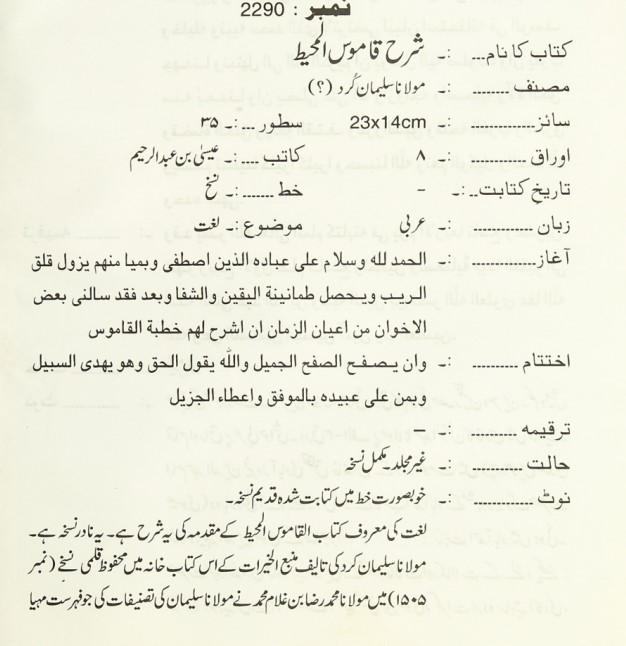 نمبر : 2290
کتاب کا نام.... :۔ شرح قاموس المحیط
مصنف ........ :۔ مولانا سلیمان کُرد (؟)
سائز ........... :۔ 23x14cm سطور ...:۔ ۳۵
اوراق .......... :۔ ۸ کاتب ....:۔ عیسیٰ بن عبدالرحیم
تاریخ کتابت..:۔ - خط .......:۔ نسخ
زبان ........... :۔ عربی موضوع :۔ لغت
آغاز ........... :۔ الحمد لله وسلام علی عباده الذین اصطفی وبمیا منهم یزول قلق
الریب ویحصل طمانینة الیقین والشفا وبعد فقد سالنی بعض
الاخوان من اعیان الزمان ان اشرح لهم خطبة القاموس
اختتام .......... :۔ وان یصفح الصفح الجمیل والله یقول الحق وهو یهدی السبیل
ویمن علی عبیده بالموفق واعطاء الجزیل
ترقیمه .......... :۔ –
حالت .......... :۔ غیر مجلد۔ مکمل نسخہ
نوٹ ........... :۔ خوبصورت خط میں کتابت شدہ قدیم نسخہ۔
لغت کی معروف کتاب القاموس المحیط کے مقدمہ کی یہ شرح ہے۔ یہ نادر نسخہ ہے۔
مولانا سلیمان کرد کی تالیف منبع الخیرات کے اس کتاب خانہ میں محفوظ قلمی نسخے (نمبر
۱۵۰۵) میں مولانا محمد رضا بن غلام محمد نے مولانا سلیمان کی تصنیفات کی جو فہرست مہیا